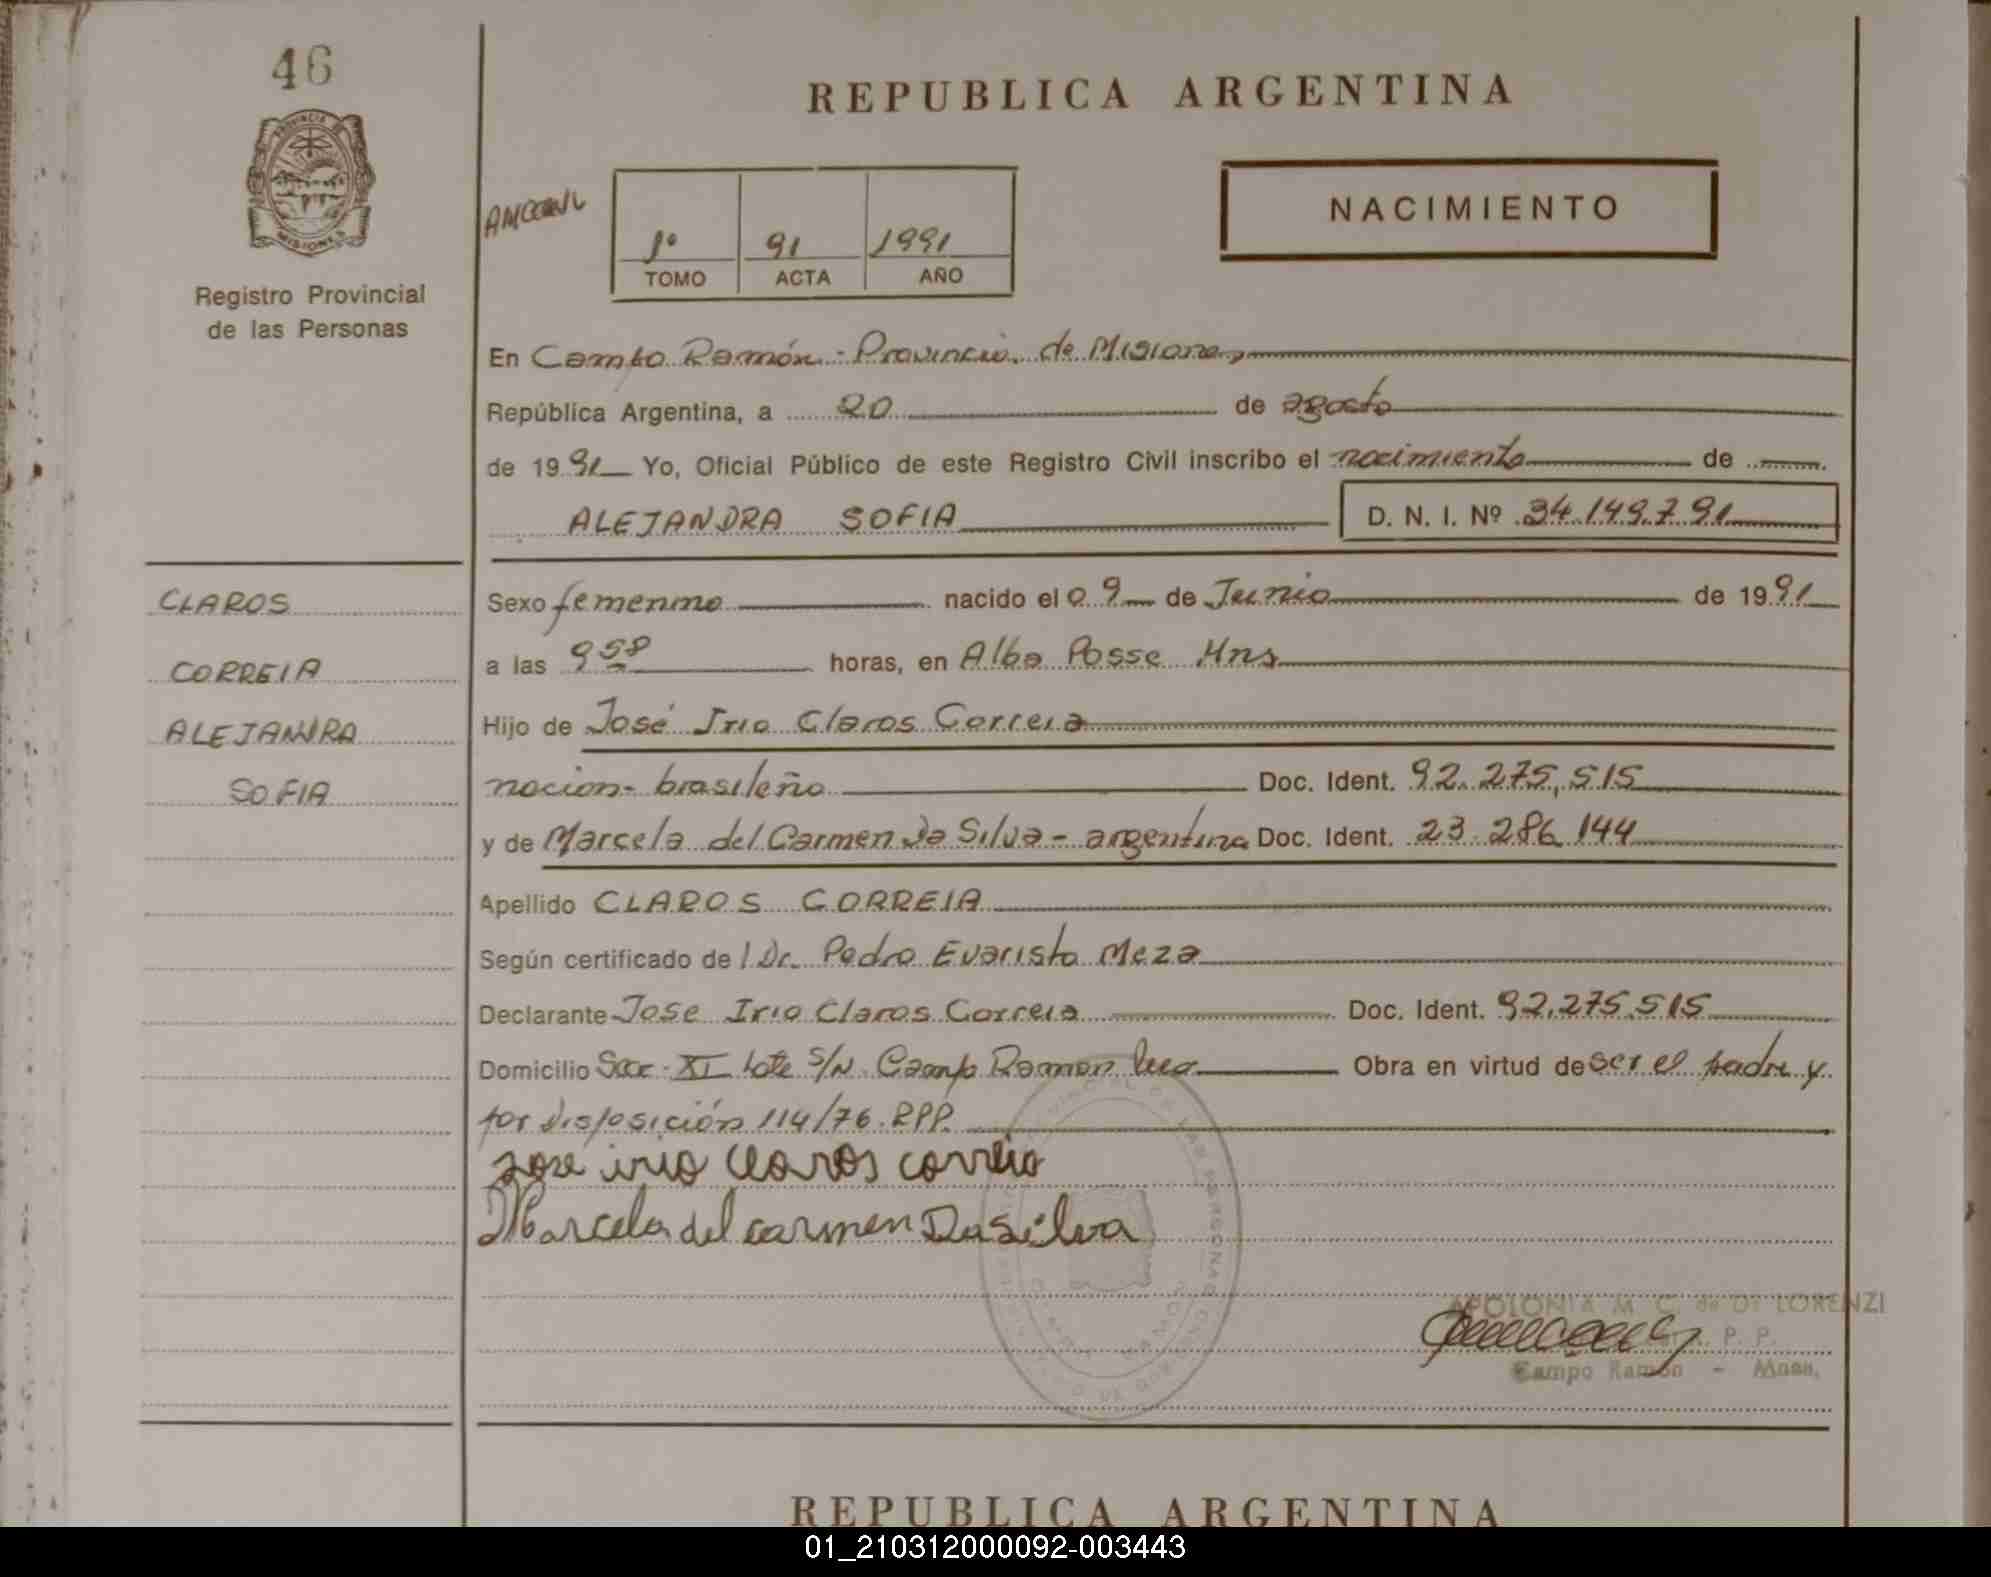 46
REPUBLICA ARGENTINA
PROVINCIA DE
MISIONES
NACIMIENTO
1º 91 1991
TOMO ACTA AÑO
Registro Provincial
de las Personas
En Campo Ramón - Provincia de Misiones
República Argentina, a 20 de agosto
de 1991 Yo, Oficial Público de este Registro Civil inscribo el nacimiento de
ALEJANDRA SOFIA D. N. I. Nº 34.149.791
CLAROS
CORREIA
ALEJANDRA
SOFIA
Sexo femenino nacido el 09 de Junio de 1991
a las 9 58 horas, en Alba Posse Mns
Hijo de José Irio Claros Correia
nacion- brasileño Doc. Ident. 92.275.515
y de Marcela del Carmen Da Silva - argentina Doc. Ident. 23.286.144
Apellido CLAROS CORREIA
Según certificado del Dr. Pedro Evaristo Meza
Declarante Jose Irio Claros Correia Doc. Ident. 92.275.515
Domicilio Secc. XI lote S/N Campo Ramon Obra en virtud de ser el padre y
por Disposición 114/76 RPP.
jose irio claros correia
Marcela del carmen Da Silva
APOLONIA M. C. de Di LORENZI
P. P.
Campo Ramón - Mnes.
REPUBLICA ARGENTINA
01_210312000092-003443